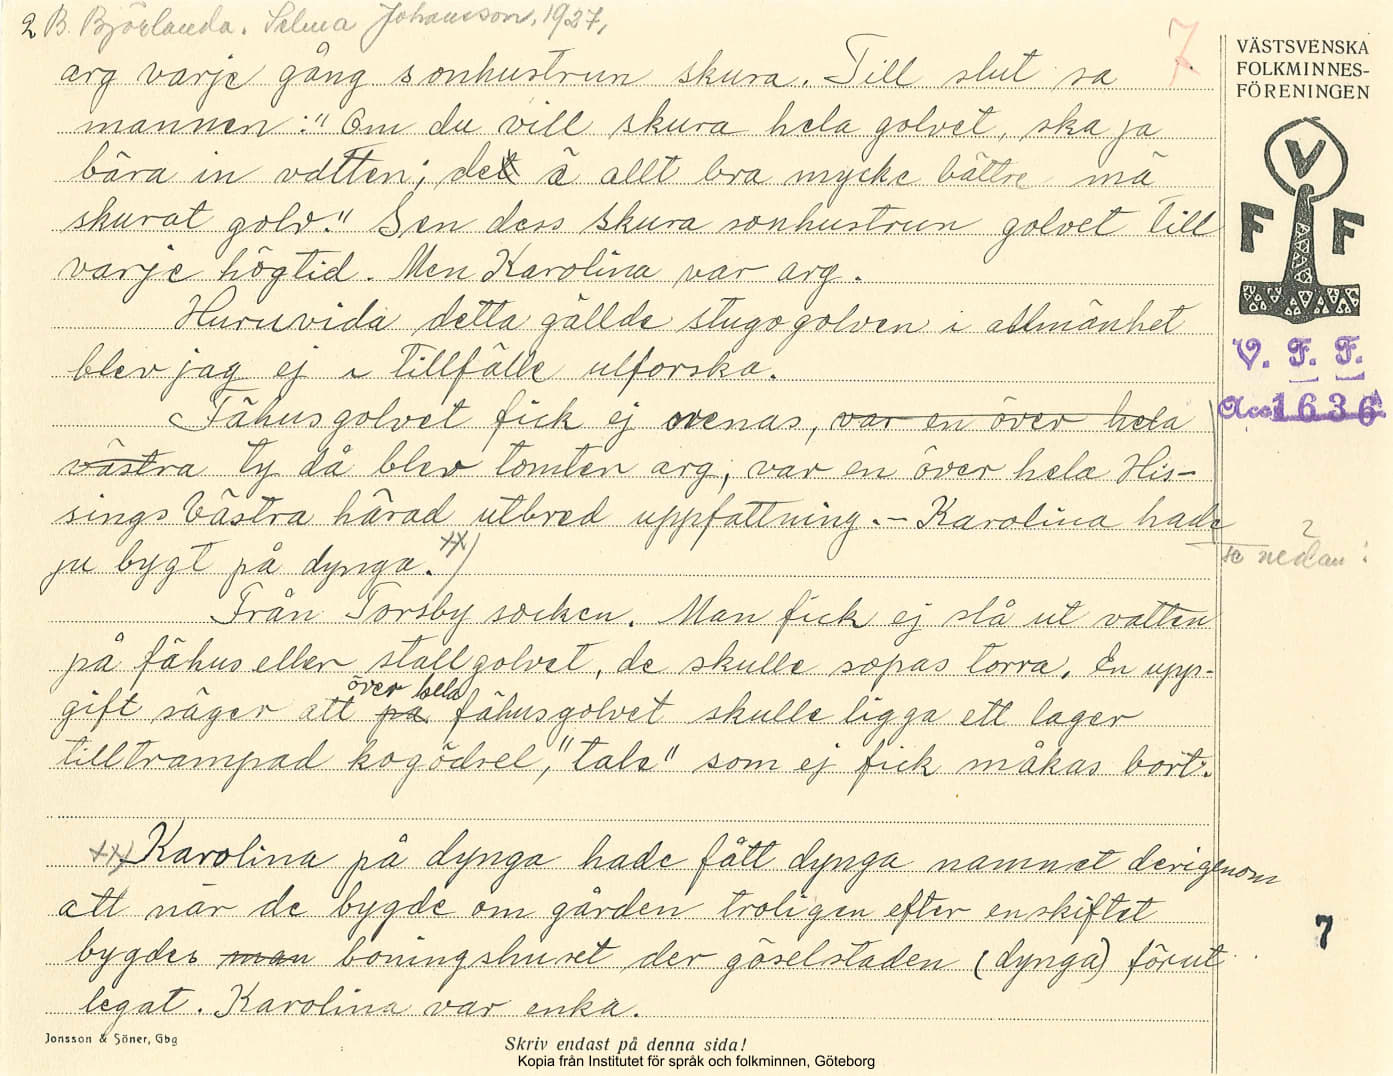 2 B. Björlanda. Selma Johansson, 1927,
7
VÄSTSVENSKA
FOLKMINNES-
FÖRENINGEN
V
F F
V. F. F.
Acc 1636
arg varje gång sonhustrun skura. Till slut sa
mannen: "Om du vill skura hela golvet, ska ja
bära in vatten; det ä allt bra mycke bättre mä
skurat golv." Sen dess skura sonhustrun golvet till
varje högtid. Men Karolina var arg.
Huruvida detta gällde stugogolven i allmänhet
blev jag ej i tillfälle utforska.
Fähusgolvet fick ej renas, var en över hela
västra ty då blev tomten arg, var en över hela His-
sings Västra härad utbred uppfattning. - Karolina hade
ju bygt på dynga. xx)
se nedan:
Från Torsby socken. Man fick ej slå ut vatten
på fähus eller stallgolvet, de skulle sopas torra. En upp-
gift säger att på över hela fähusgolvet skulle ligga ett lager
tilltrampad kogödsel, "tale" som ej fick måkas bort.
xx) Karolina på dynga hade fått dynga namnet derigenom
att när de bygde om gården troligen efter enskiftet
bygdes man boningshuset der göselstaden (dynga) förut
legat. Karolina var enka.
7
Jonsson & Söner, Gbg
Skriv endast på denna sida!
Kopia från Institutet för språk och folkminnen, Göteborg